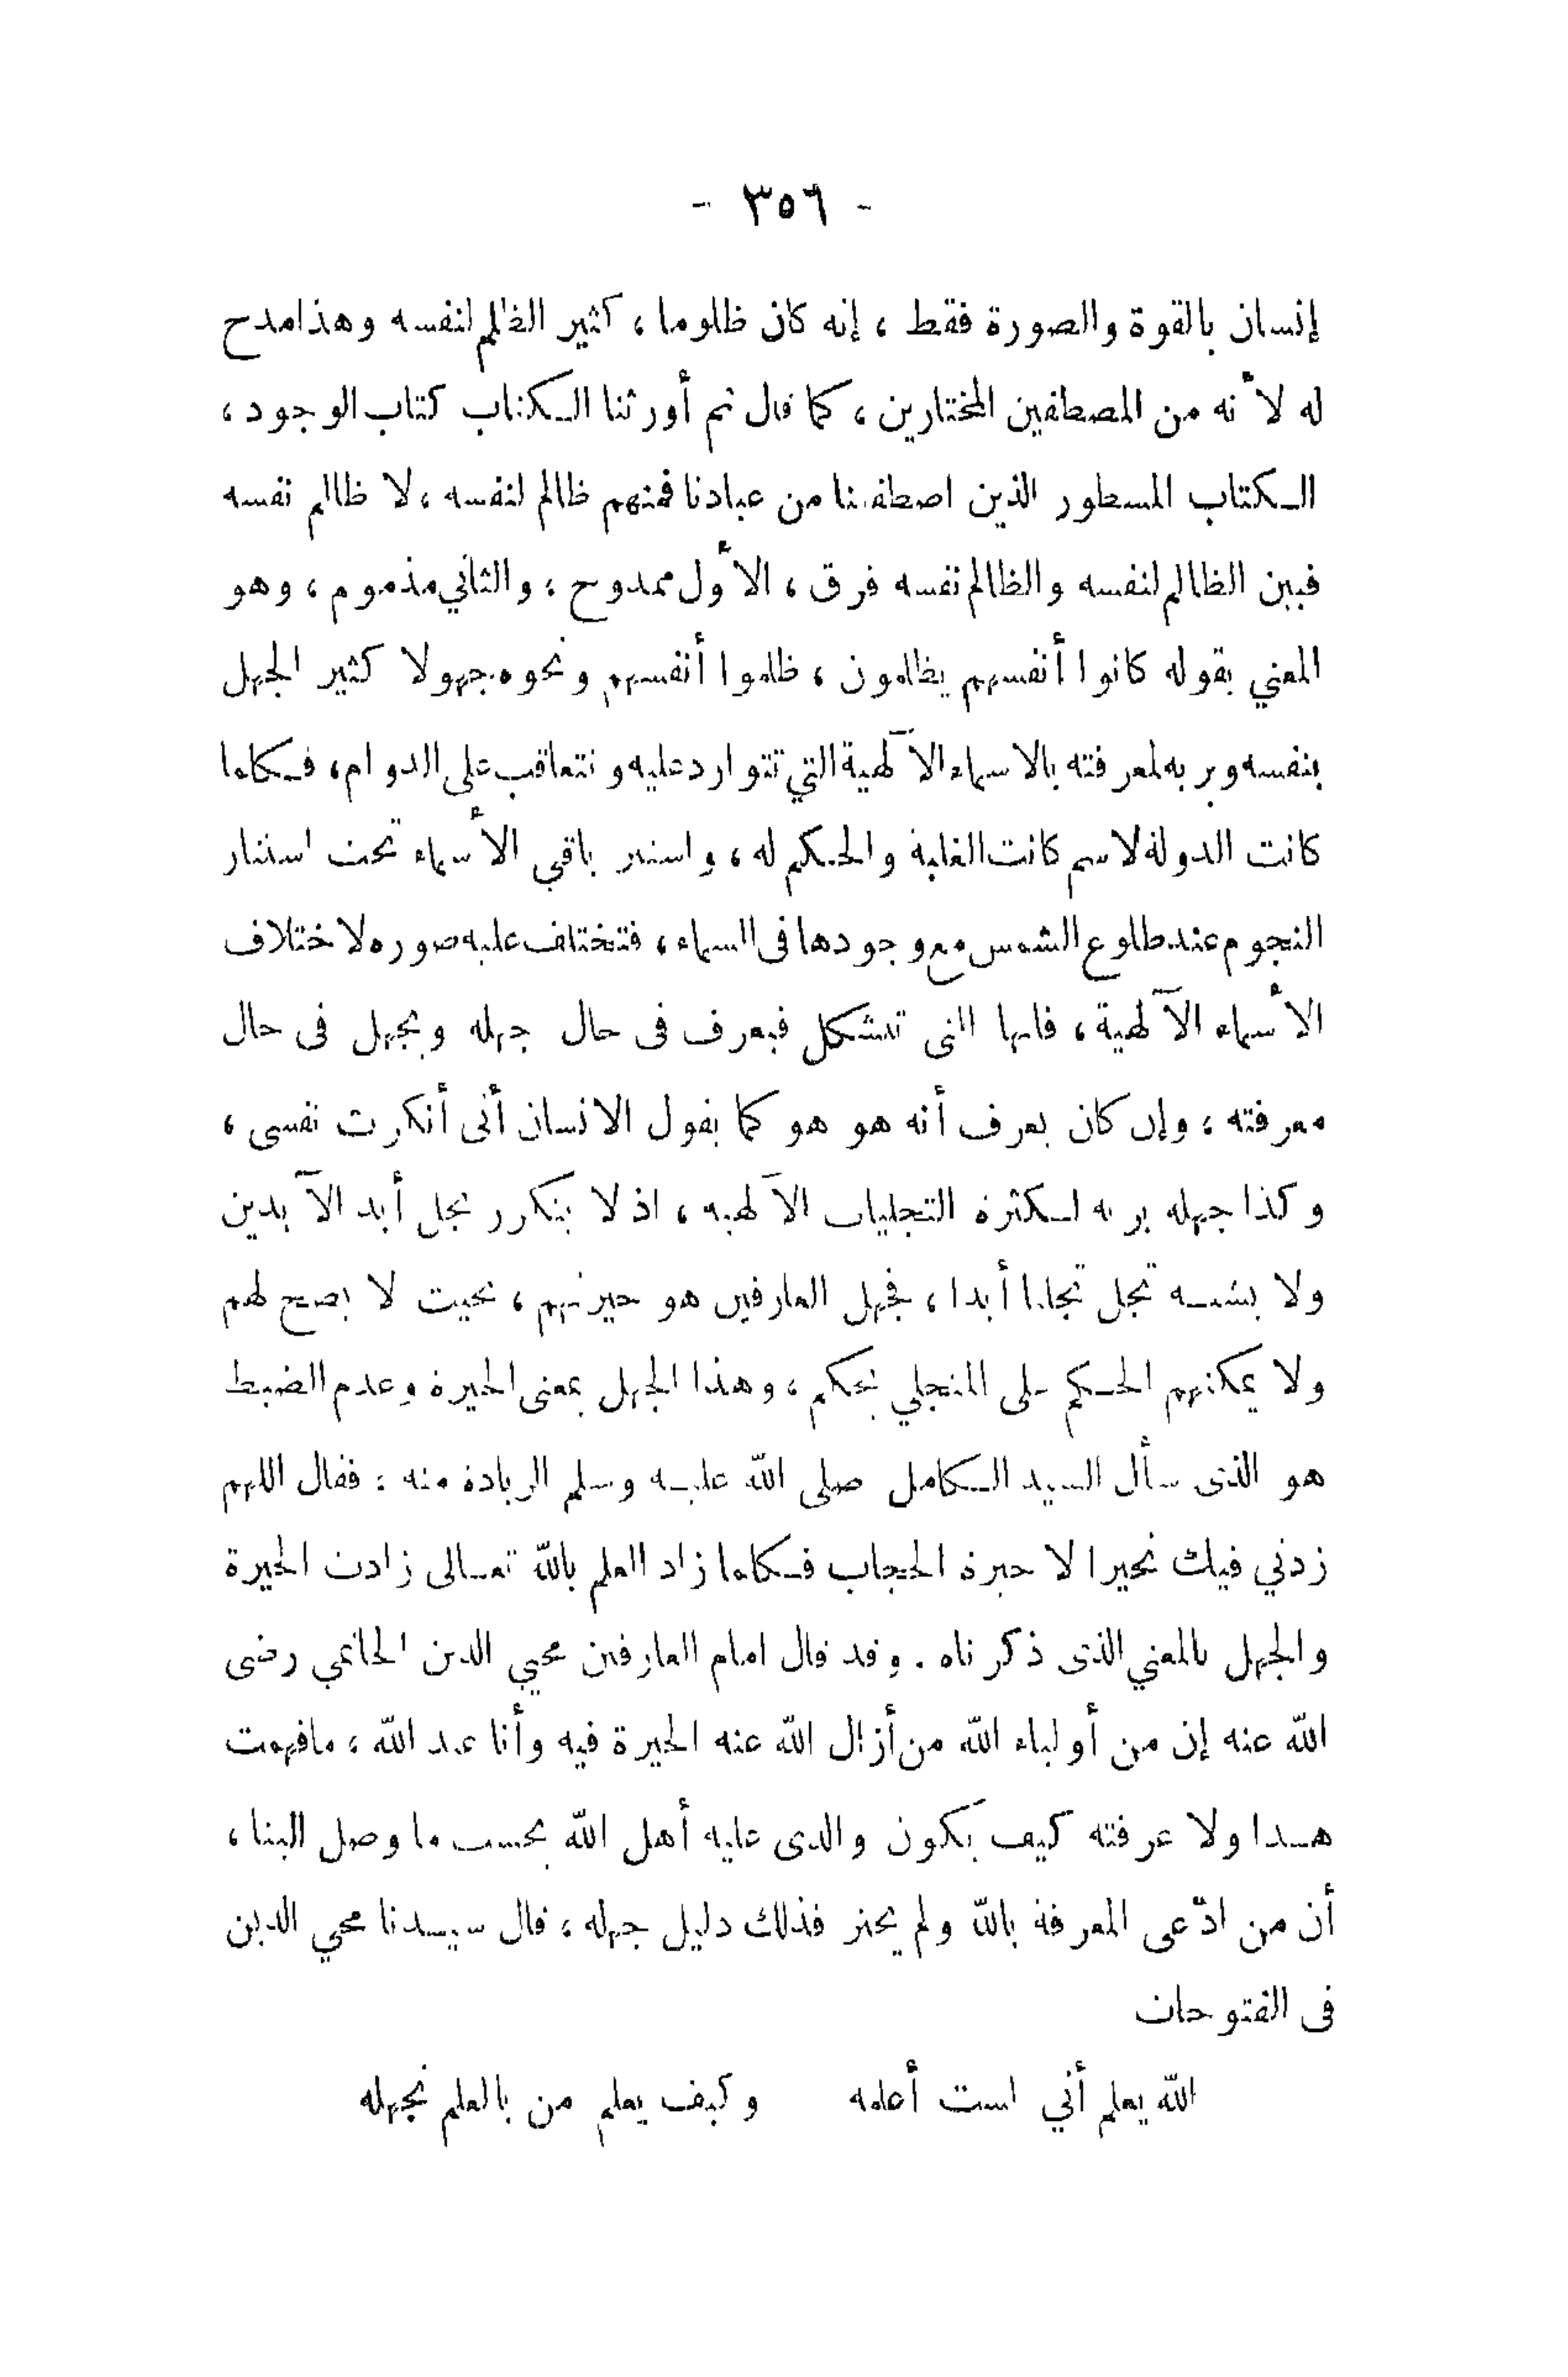 - ٣٥٦ -
إنسان بالقوة والصورة فقط ، إنه كان ظلوما ، كثير الظلم لنفسه وهذا مدح
له لأنه من المصطفين المختارين ، كما قال ثم أورثنا الكتاب كتاب الوجود ،
الكتاب المسطور الذين اصطفينا من عبادنا فمنهم ظالم لنفسه ، لا ظالم نفسه
فبين الظالم لنفسه والظالم نفسه فرق ، الأول ممدوح ، والثاني مذموم ، وهو
المعني بقوله كانوا أنفسهم يظلمون ، ظلموا أنفسهم ونحوه جهولا كثير الجهل
بنفسه وبربه لمعرفته بالاسماء الآلهية التي تتوارد عليه وتتعاقب على الدوام ، فكلما
كانت الدولة لاسم كانت الغلبة والحكم له ، واستتر باقي الأسماء تحت استتار
النجوم عند طلوع الشمس مع وجودها فى السماء ، فتختلف عليه صوره لاختلاف
الأسماء الآلهية ، فانها التى تتشكل فيعرف فى حال جهله ويجهل فى حال
معرفته ، وإن كان يعرف أنه هو هو كما يقول الانسان أنى أنكرت نفسى ،
وكذا جهله بربه لكثرة التجليات الآلهية ، اذ لا يتكرر تجل أبد الآبدين
ولا يشبه تجل تجليا أبدا ، فجهل العارفين هو حيرتهم ، بحيث لا يصح لهم
ولا يمكنهم الحكم على المتجلي بحكم ، وهذا الجهل بمعنى الحيرة وعدم الضبط
هو الذى سأل السيد الكامل صلى الله عليه وسلم الزيادة منه : فقال اللهم
زدني فيك تحيرا لا حيرة الحجاب فكلما زاد العلم بالله تعالى زادت الحيرة
والجهل بالمعني الذى ذكرناه . وقد قال امام العارفين محيي الدين الحاتمي رضى
الله عنه إن من أولياء الله من أزال الله عنه الحيرة فيه وأنا عبد الله ، ما فهمت
هذا ولا عرفته كيف يكون والذى عليه أهل الله بحسب ما وصل الينا ،
أن من ادّعى المعرفة بالله ولم يحتر فذلك دليل جهله ، قال سيدنا محي الدين
فى الفتوحات
الله يعلم أني لست أعلمه وكيف يعلم من بالعلم نجهله